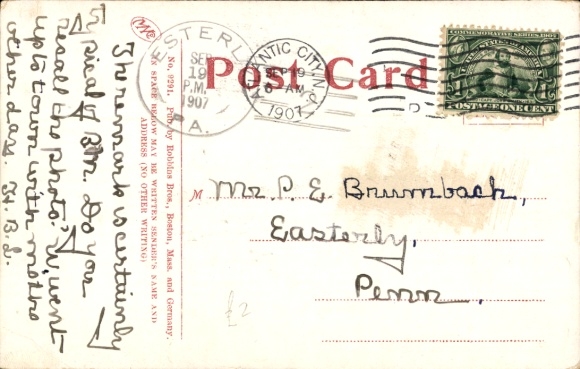 Post Card
EASTERLY
SEP
19
P.M.
1907
PA.
ATLANTIC CITY, N.J.
SEP 19
6 - AM
1907
COMMEMORATIVE SERIES 1907
UNITED STATES OF AMERICA
1 1
POSTAGE ONE CENT
No. 9291. Pub. by Robbins Bros., Boston, Mass. and Germany.
SPACE BELOW MAY BE WRITTEN SENDER'S NAME AND
ADDRESS (NO OTHER WRITING)
The remark is certainly
typical of Bm. Do you
recall the photo? W. went
up to town with me the
other day. H. B. L.
M Mr. P. E. Brumbach,
Easterly,
Penn.
£2